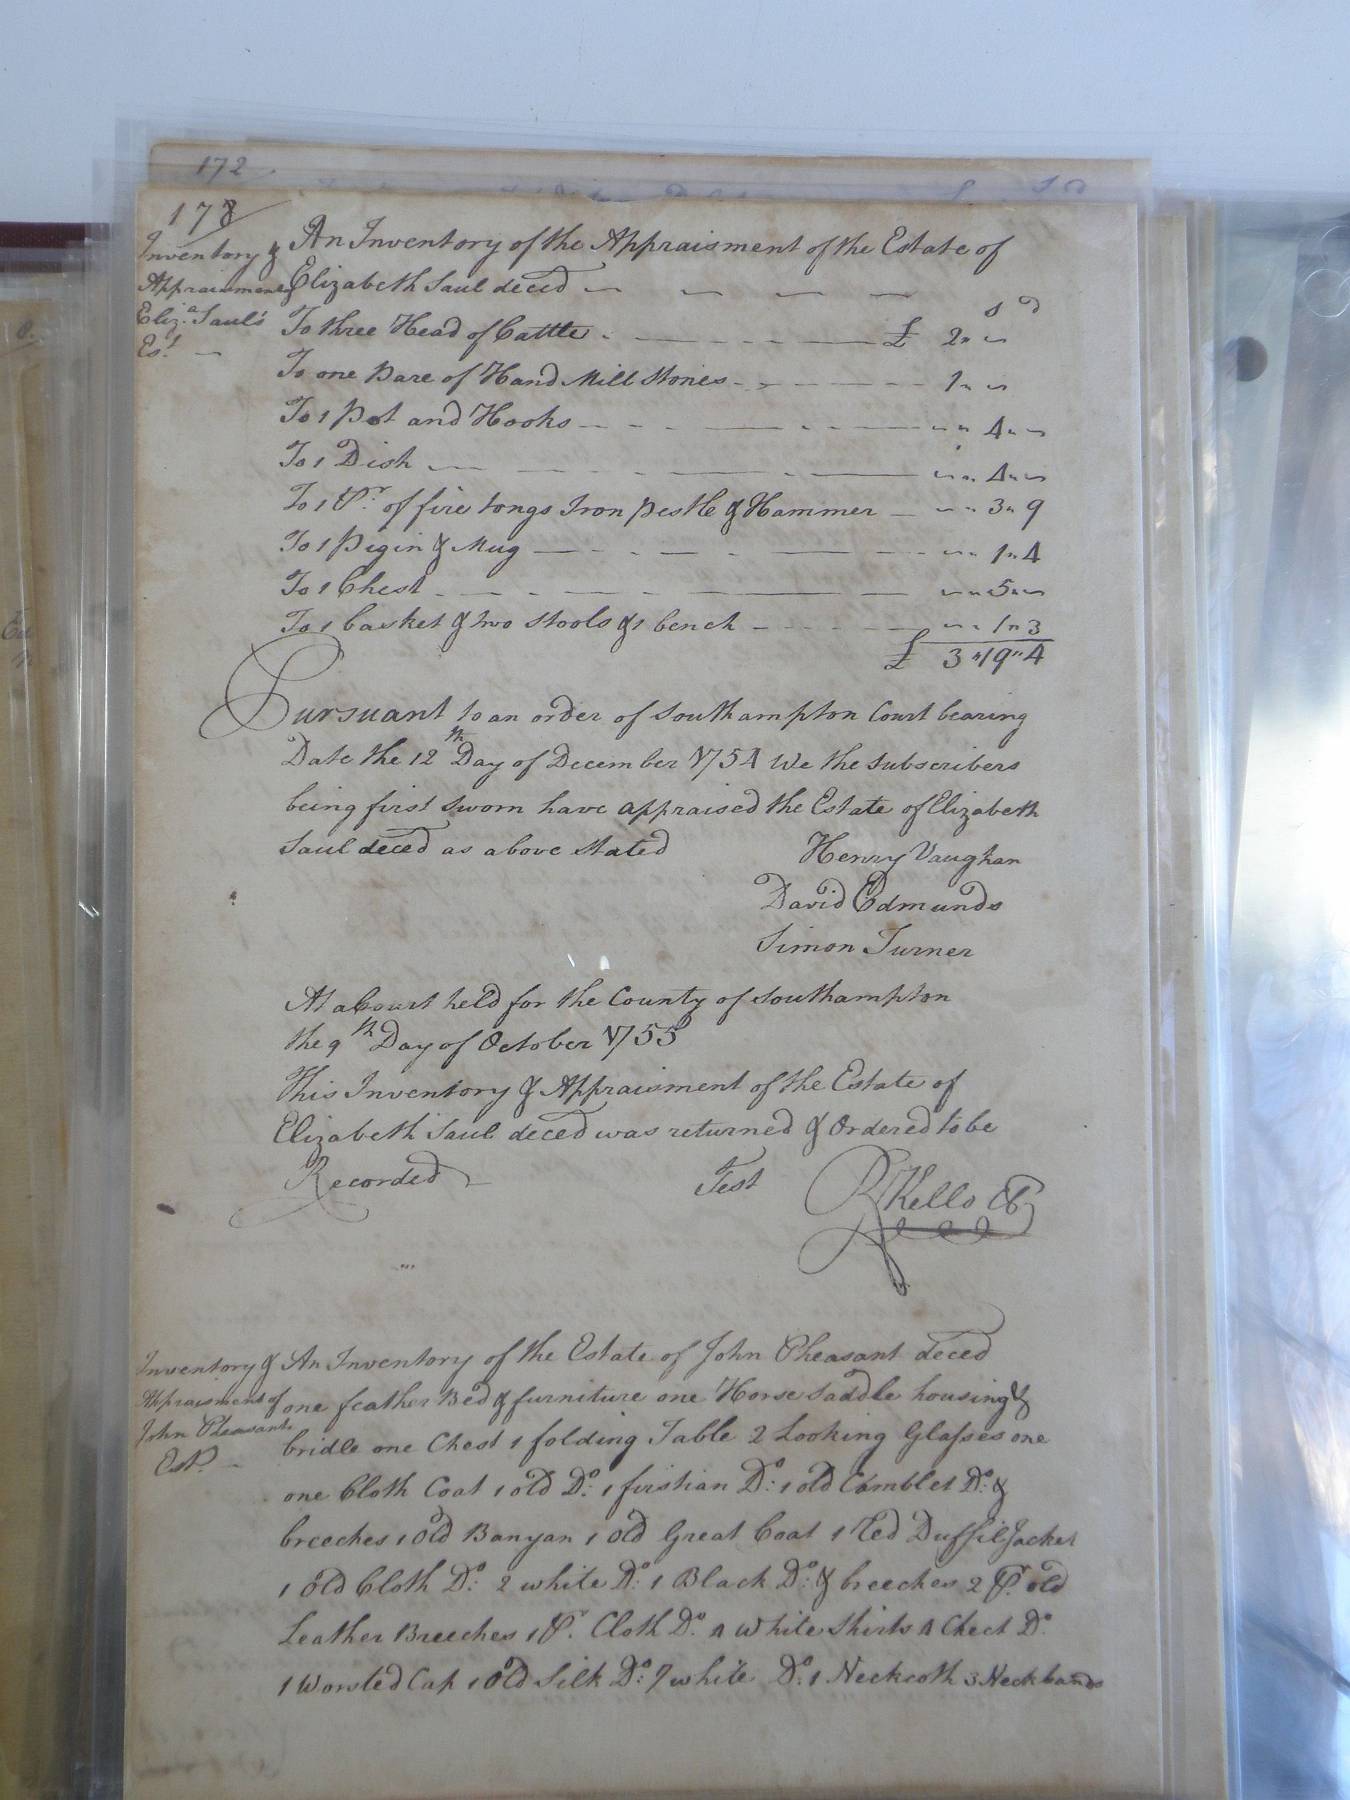 172
178
Inventory &
Appraisment of
Eliz.a Saul's
Est.
An Inventory of the Appraisment of the Estate of
Elizabeth Saul deced
s d
To three Head of Cattle £ 2
To one Pare of Hand Mill Stones 1
To 1 Pot and Hooks 4
To 1 Dish 4
To 1 Pr. of fire tongs Iron pestle & Hammer 3 " 9
To 1 Pigin & Mug 1 " 4
To 1 Chest 5
To 1 basket & two stools & 1 bench 1 " 3
£ 3 " 19 " 4
Pursuant to an order of Southampton Court bearing
Date the 12th Day of December 1754 We the Subscribers
being first Sworn have appraised the Estate of Elizabeth
Saul deced as above stated Henry Vaughan
David Edmunds
Simon Turner
At a Court held for the County of Southampton
the 9th Day of October 1755
This Inventory & Appraisment of the Estate of
Elizabeth Saul deced was returned & Ordered to be
Recorded Test R Kello
Inventory &
Appraisment of
John Pheasants
Est.
An Inventory of the Estate of John Pheasant deced
one feather Bed & furniture one Horse Saddle housing &
bridle one Chest 1 folding Table 2 Looking Glasses one
one Cloth Coat 1 old Do: 1 firstian Do: 1 old Camblet Do: &
breeches 1 Old Banyan 1 Old Great Coat 1 Red Duffil Jacket
1 Old Cloth Do: 2 white Do: 1 Black Do: & breeches 2 Pr. old
Leather Breeches 1 Pr. Cloth Do. 4 white Shirts 4 Check Do.
1 Worsted Cap 1 Old Silk Do: 7 white Do. 1 Neckcoth 3 Neckbands